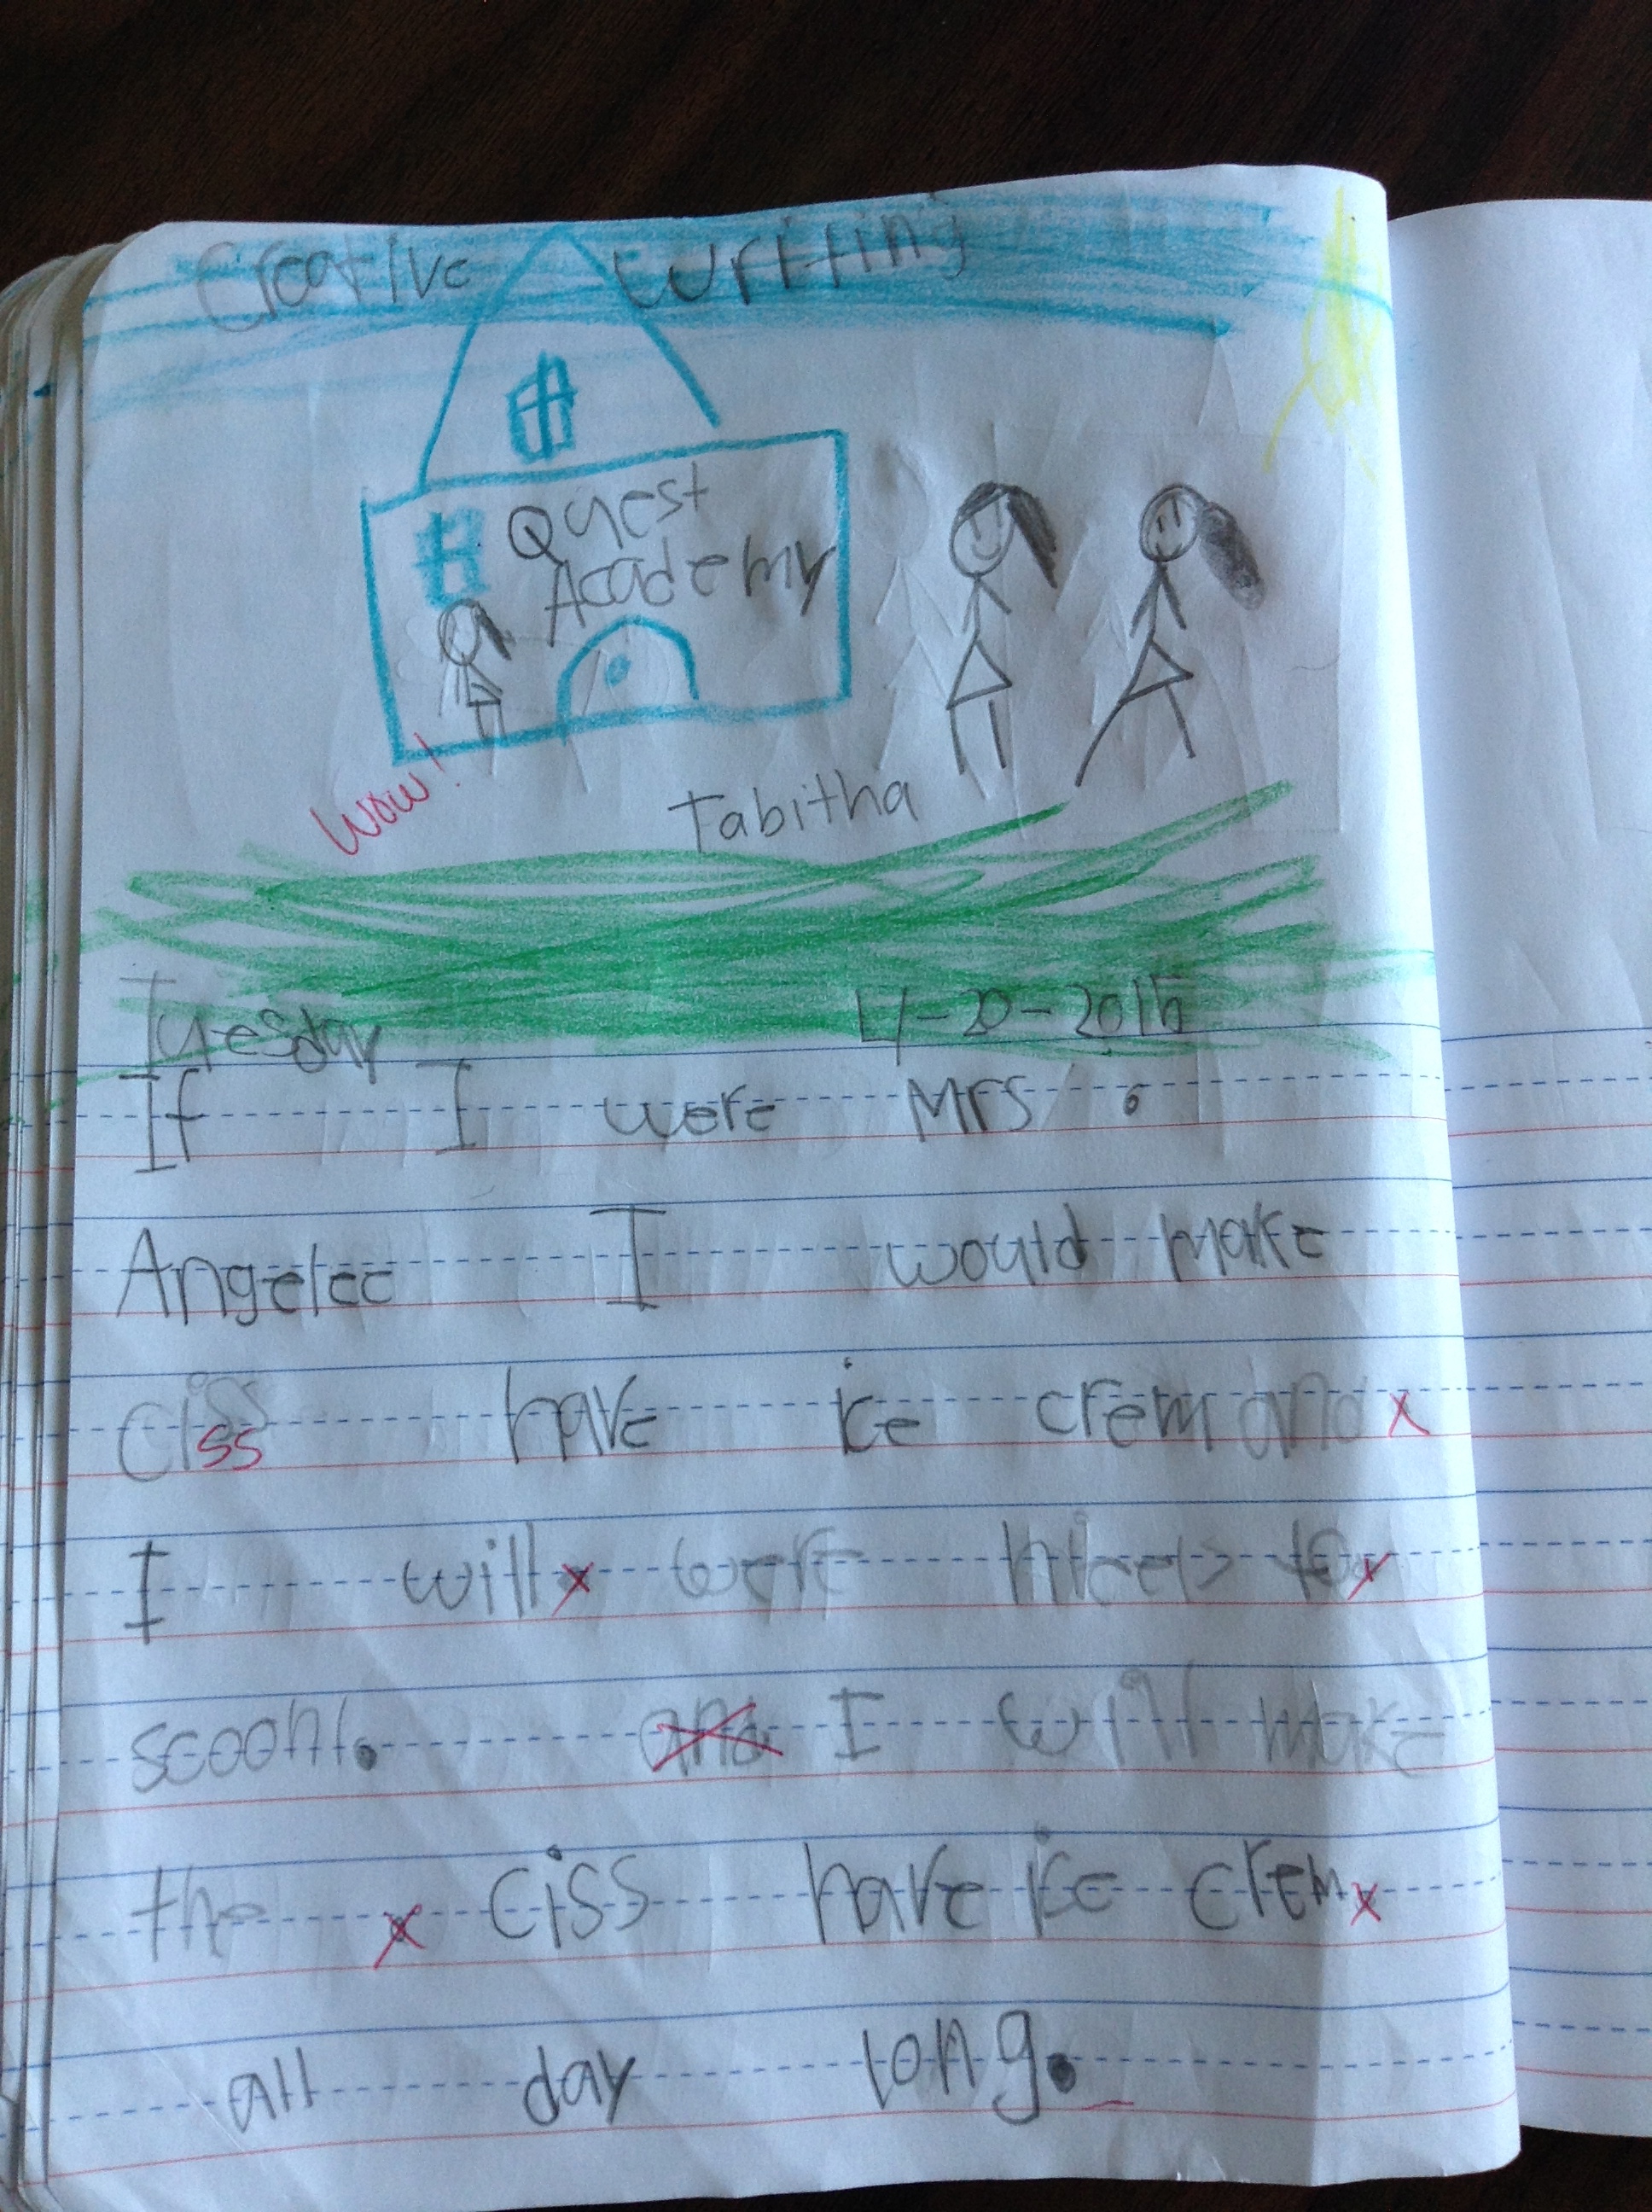 Creative writing
Quest
Academy
Wow!
Tabitha
Tuesday 4-20-2016
If I were Mrs.
Angelee I would make
Ciss have ice crem and x
I will x were hieels to x
scoohl. and I will make
the x Ciss have ice crem x
all day long.